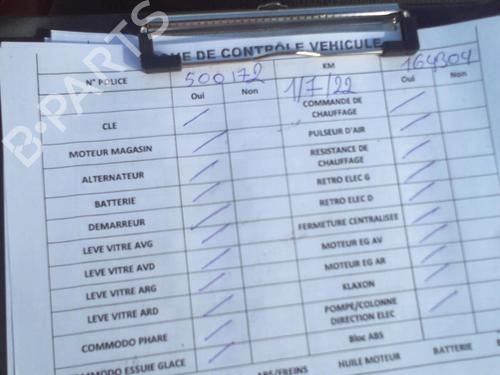 DE CONTRÔLE VEHICULE
N° POLICE 500172 KM 164304
Oui Non 1/7/22 Oui Non
CLE COMMANDE DE CHAUFFAGE
MOTEUR MAGASIN PULSEUR D'AIR
ALTERNATEUR RESISTANCE DE CHAUFFAGE
BATTERIE RETRO ELEC G
DEMARREUR RETRO ELEC D
LEVE VITRE AVG FERMETURE CENTRALISEE
LEVE VITRE AVD MOTEUR EG AV
LEVE VITRE ARG MOTEUR EG AR
LEVE VITRE ARD KLAXON
COMMODO PHARE POMPE/COLONNE DIRECTION ELEC
COMMODO ESSUIE GLACE Bloc ABS
ABS/FREINS HUILE MOTEUR BATTERIE
B-PARTS